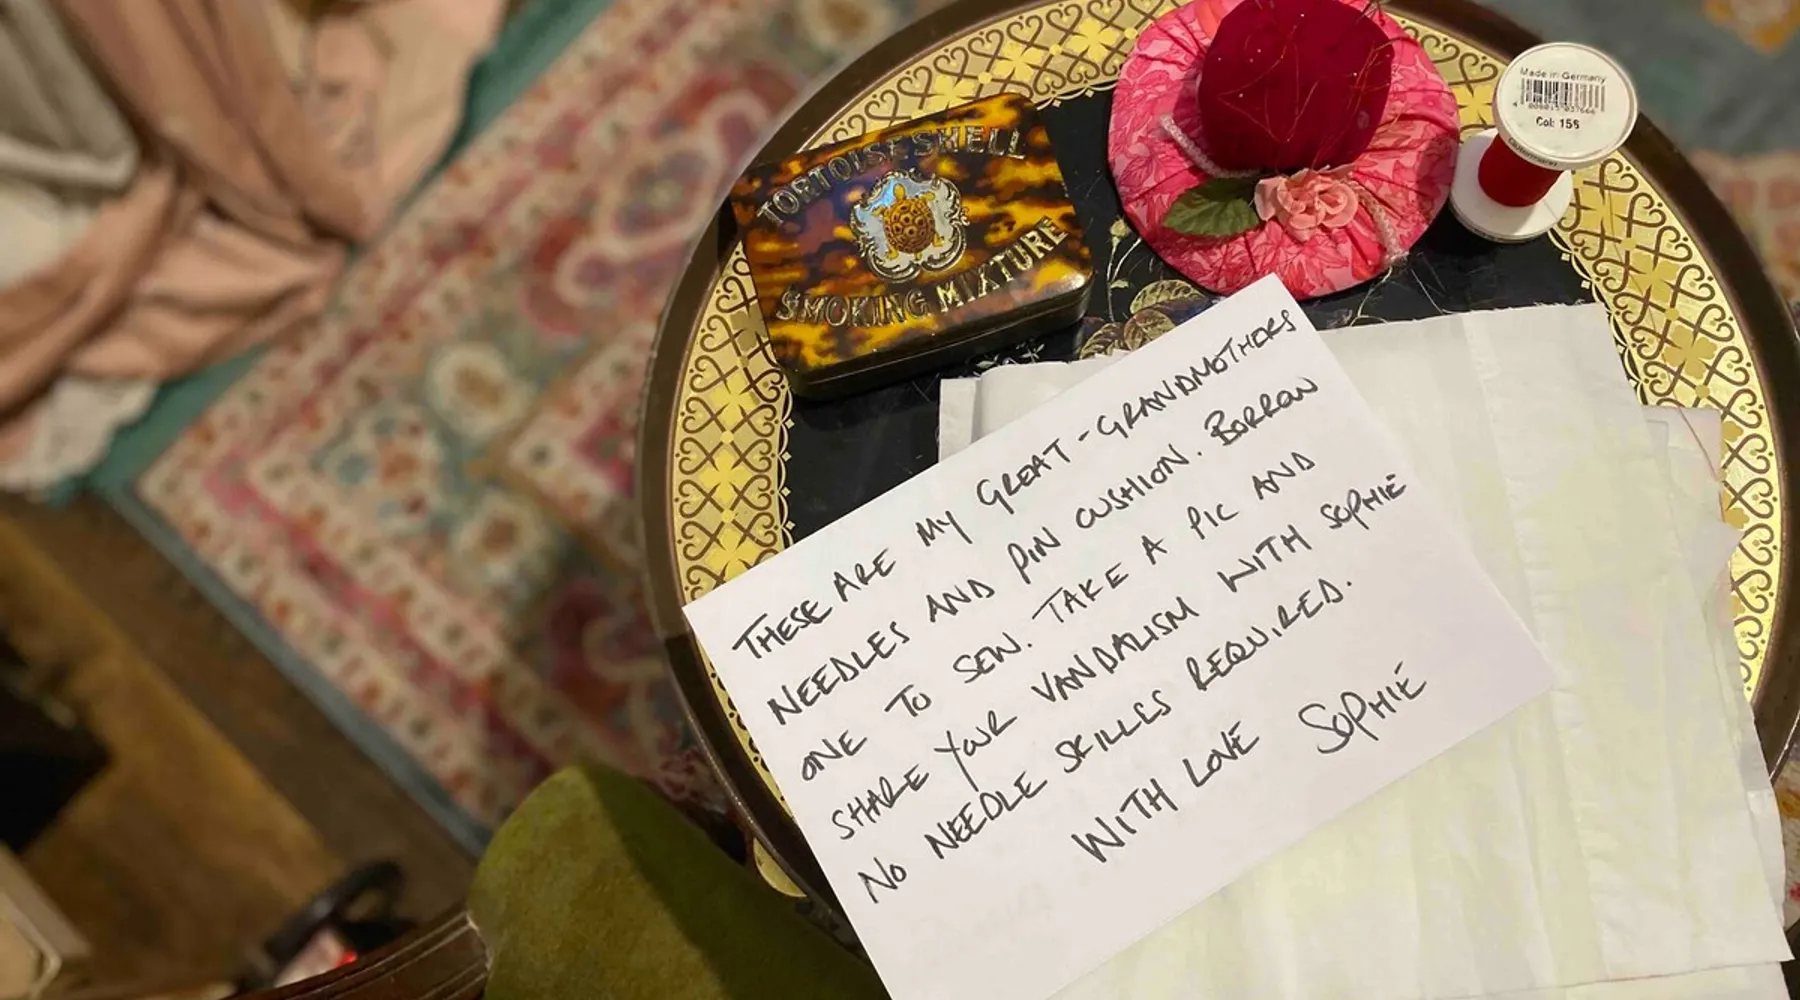 TORTOISESHELL
SMOKING MIXTURE
Made in Germany
Col: 156
THESE ARE MY GREAT-GRANDMOTHERS
NEEDLES AND PIN CUSHION. BORROW
ONE TO SEW. TAKE A PIC AND
SHARE YOUR VANDALISM WITH SOPHIE
NO NEEDLE SKILLS REQUIRED.
WITH LOVE SOPHIE